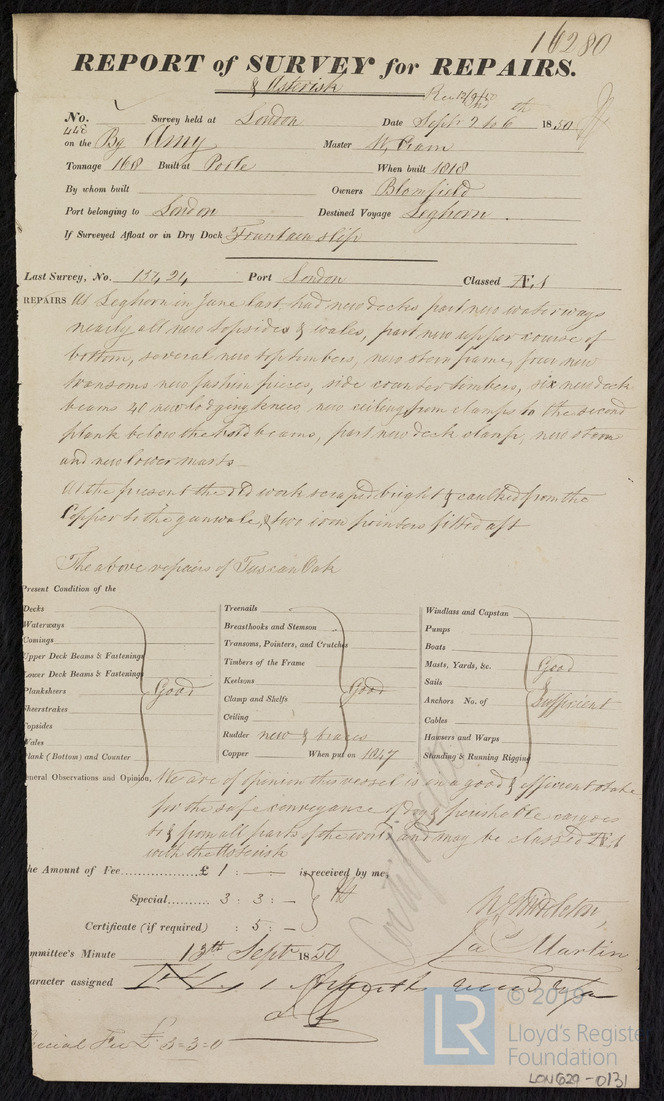 16280
REPORT of SURVEY for REPAIRS.
& Asterisk
Rec 12/9/50
No. 448 Survey held at London Date Septr 2nd to 6th 1850
on the Bg Amy Master W.
Tonnage 168 Built at Poole When built 1818
By whom built Owners Blomfield
Port belonging to London Destined Voyage Leghorn.
If Surveyed Afloat or in Dry Dock Fountain slip
Last Survey, No. Port London Classed Æ,1
REPAIRS At Leghorn in June last had new decks part new waterways
nearly all new topsides & wales, part new upper course of
bottom, several new toptimbers, new stern frame, four new
transoms new fashion pieces, side counter timbers, six new deck
beams 40 new lodging knees, new ceiling from clamps to the second
plank below the hold beams, part new deck clamp, new stem
and new lower masts
At the present the old work scraped bright & caulked from the
Copper to the gunwale, & two iron pointers fitted aft
The above repairs of Tuscan Oak
Present Condition of the
Decks
Waterways
Comings
Upper Deck Beams & Fastenings
Lower Deck Beams & Fastenings
Planksheers
Sheerstrakes
Topsides
Wales
Plank (Bottom) and Counter
Good
Treenails
Breasthooks and Stemson
Transoms, Pointers, and Crutches
Timbers of the Frame
Keelsons
Clamp and Shelfs
Ceiling
Rudder new & braces
Copper When put on 1847
Good
Windlass and Capstan
Pumps
Boats
Masts, Yards, &c.
Sails
Anchors No. of
Cables
Hawsers and Warps
Standing & Running Rigging
Good
&
Sufficient
General Observations and Opinion, We are of opinion this vessel is in a good & efficient state
for the safe conveyance of dry & perishable cargoes
to & from all parts of the world and may be classed Æ1
with the Asterisk
Certificate
The Amount of Fee £ 1 : — : is received by me,
Special 3 : 3 : —
Certificate (if required) : 5 : —
Middleton,
Jas Martin
Committee's Minute 13th Septr 1850
Character assigned
Special Fee £ 3=3=0
LR © 2019
Lloyd's Register
Foundation
LON629-0131